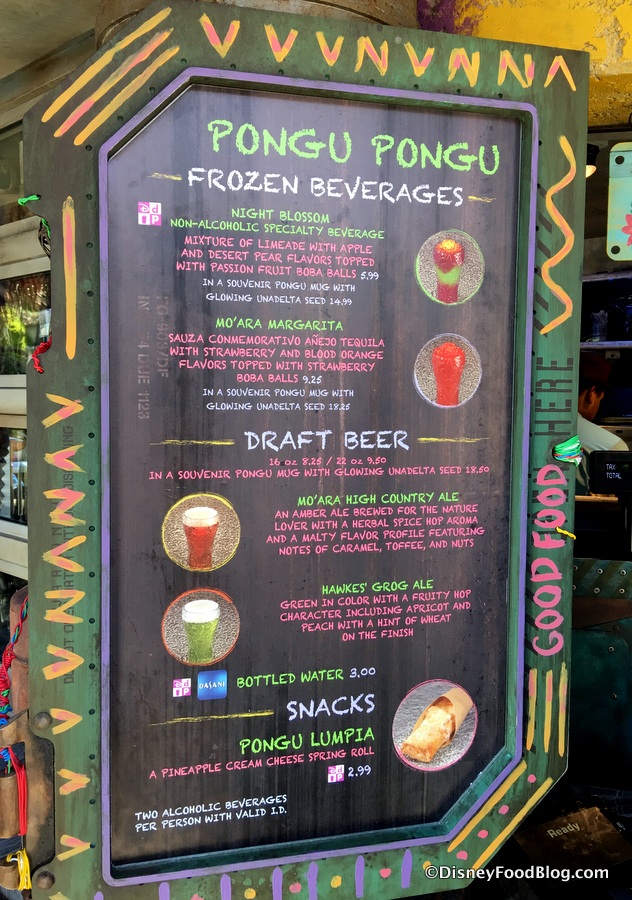 PONGU PONGU
FROZEN BEVERAGES
NIGHT BLOSSOM
NON-ALCOHOLIC SPECIALTY BEVERAGE
MIXTURE OF LIMEADE WITH APPLE
AND DESERT PEAR FLAVORS TOPPED
WITH PASSION FRUIT BOBA BALLS 5.99
IN A SOUVENIR PONGU MUG WITH
GLOWING UNADELTA SEED 14.99
MO'ARA MARGARITA
SAUZA CONMEMORATIVO AÑEJO TEQUILA
WITH STRAWBERRY AND BLOOD ORANGE
FLAVORS TOPPED WITH STRAWBERRY
BOBA BALLS 9.25
IN A SOUVENIR PONGU MUG WITH
GLOWING UNADELTA SEED 18.25
DRAFT BEER
16 oz 8.25 / 22 oz 9.50
IN A SOUVENIR PONGU MUG WITH GLOWING UNADELTA SEED 18.50
MO'ARA HIGH COUNTRY ALE
AN AMBER ALE BREWED FOR THE NATURE
LOVER WITH A HERBAL SPICE HOP AROMA
AND A MALTY FLAVOR PROFILE FEATURING
NOTES OF CARAMEL, TOFFEE, AND NUTS
HAWKES' GROG ALE
GREEN IN COLOR WITH A FRUITY HOP
CHARACTER INCLUDING APRICOT AND
PEACH WITH A HINT OF WHEAT
ON THE FINISH
DASANI BOTTLED WATER 3.00
SNACKS
PONGU LUMPIA
A PINEAPPLE CREAM CHEESE SPRING ROLL
2.99
TWO ALCOHOLIC BEVERAGES
PER PERSON WITH VALID I.D.
GOOD FOOD HERE
TAX
TOTAL
Ready
©DisneyFoodBlog.com